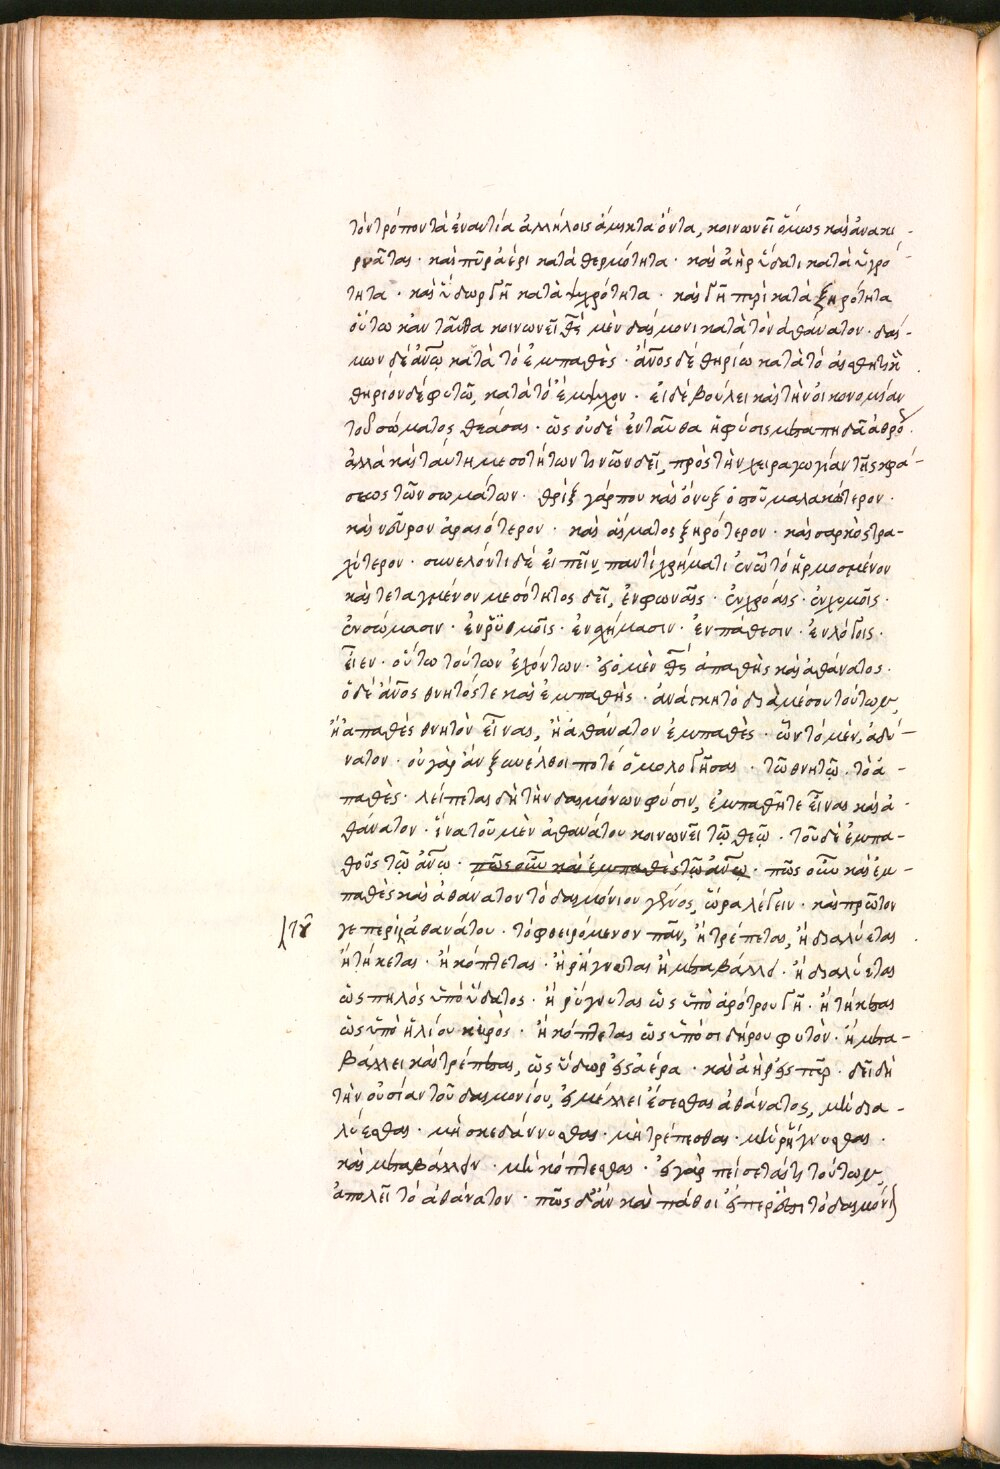 τὸν τρόπον τὰ ἐναντία ἀλλήλοις ἄμικτα ὄντα, κοινωνεῖ ὅμως καὶ ἀνακι-
ρνᾶται· καὶ πῦρ ἀέρι κατὰ θερμότητα· καὶ ἀὴρ ὕδατι κατὰ ὑγρό-
τητα· καὶ ὕδωρ γῆ κατὰ ψυχρότητα· καὶ γῆ πυρὶ κατὰ ξηρότητα
οὕτω κἀνταῦθα κοινωνεῖ θς μὲν δαίμονι κατὰ τὸν ἀθάνατον· δαί-
μων δὲ ἀνῳ κατὰ τὸ ἐμπαθὲς· ἄνος δὲ θηρίω κατὰ τὸ αἰσθητικὸν
θηρίον δὲ φυτῶ, κατὰ τὸ ἔμψυχον· εἰ δὲ βούλει καὶ τὴν οἰκονομίαν
τοῦ σώματος θεάσαι· ὡς οὐδὲ ἐνταῦθα ἡ φύσις μεταπηδᾶ ἀθρόον·
ἀλλὰ καὶ ταύτη μεσοτήτων τινῶν δεῖ, πρὸς τὴν χειραγωγίαν τῆς κρά-
σεως τῶν σωμάτων· θρὶξ γάρ που καὶ ὄνυξ ὀστοῦ μαλακώτερον·
καὶ νεῦρον ἀραιότερον· καὶ αἵματος ξηρότερον· καὶ σαρκὸς τρα-
χύτερον· συνελόντι δὲ εἰπεῖν, παντὶ χρήματι ἐν ᾧ τὸ ἡρμοσμένον
καὶ τεταγμένον μεσότητος δεῖ, ἐν φωναῖς· ἐν χρόαις· ἐν χυμοῖς·
ἐν σώμασιν· ἐν ῥυθμοῖς· ἐν σχήμασιν· ἐν πάθεσιν· ἐν λόγοις·
εἶεν· οὕτω τούτων ἐχόντων· εἰ ὁ μὲν θς ἀπαθὴς καὶ ἀθάνατος·
ὁ δὲ ἄνος θνητός τε καὶ ἐμπαθὴς· ἀνάγκη τὸ διὰ μέσου τούτων,
ἢ ἀπαθὲς θνητὸν εἶναι, ἢ ἀθάνατον ἐμπαθὲς· ὧν τὸ μὲν, ἀδύ-
νατον· οὐ γὰρ ἂν ξυνέλθοι ποτὲ ὁμολογῆσαι· τῶ θνητῷ· τὸ ἀ-
παθὲς· λείπεται δὴ τὴν δαιμόνων φύσιν, ἐμπαθῆ τε εἶναι καὶ ἀ-
θάνατον· ἵνα τοῦ μὲν ἀθανάτου κοινωνεῖ τῷ θεῷ· τοῦ δὲ ἐμπα-
θοῦς τῷ ἀνῳ· πῶς οὖν καὶ ἐμπαθὲς τῷ ἀνῳ· πῶς οὖν καὶ ἐμ-
παθὲς καὶ ἀθάνατον τὸ δαιμόνιον γένος, ὥρα λέγειν· καὶ πρῶτον
τοῦ
γε περὶ ἀθανάτου· τὸ φθειρόμενον πᾶν, ἢ τρέπεται, ἢ διαλύεται
ἢ τήκεται· ἢ κόπτεται· ἢ ῥήγνυται ἢ μεταβάλλει· ἢ διαλύεται
ὡς πηλὸς ὑπὸ ὕδατος· ἢ ῥύγνυται ὡς ὑπὸ ἀρότρου γῆ· ἢ τήκεται
ὡς ὑπὸ ἡλίου κηρὸς· ἢ κόπτεται ὡς ὑπὸ σιδήρου φυτὸν· ἢ μετα-
βάλλει καὶ τρέπεται, ὡς ὕδωρ εἰς ἀέρα· καὶ ἀὴρ εἰς πῦρ· δεῖ δὴ
τὴν οὐσίαν τοῦ δαιμονίου, εἰ μέλλει ἔσεσθαι ἀθάνατος, μὴ δια-
λύεσθαι· μὴ σκεδάννυσθαι· μὴ τρέπεσθαι· μὴ ῥήγνυσθαι·
καὶ μεταβάλλειν· μὴ κόπτεσθαι· εἰ γὰρ πείσεταί τι τούτων,
ἀπολεῖ τὸ ἀθάνατον· πῶς δ' ἂν καὶ πάθοι εἴπερ ἐστὶ τὸ δαιμόνιον